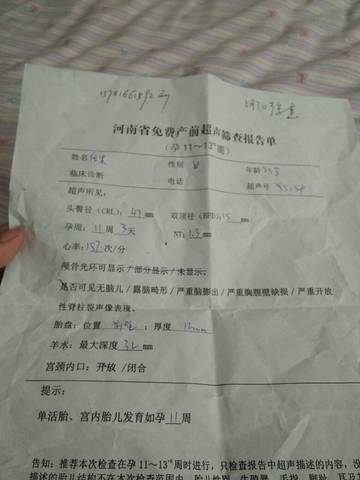 河南省免费产前超声筛查报告单
(孕11~13⁺⁶周)
姓名 性别 女 年龄
临床诊断 电话 超声号
超声所见:
头臀径(CRL): mm 双顶径(BPD): 15 mm
孕周: 11 周 3 天 NT: 1.3 mm
心率: 157 次/分
颅骨光环可显示/部分显示/未显示。
是否可见无脑儿/露脑畸形/严重脑膨出/严重胸腹壁缺损/严重开放
性脊柱裂声像表现。
胎盘:位置 ;厚度 mm
羊水:最大深度 32 mm
宫颈内口:开放/闭合
提示:
单活胎、宫内胎儿发育如孕 11 周
告知:推荐本次检查在孕11~13⁺⁶周时进行,只检查报告中超声描述的内容,没
描述的胎儿结构不在本次检查范围内